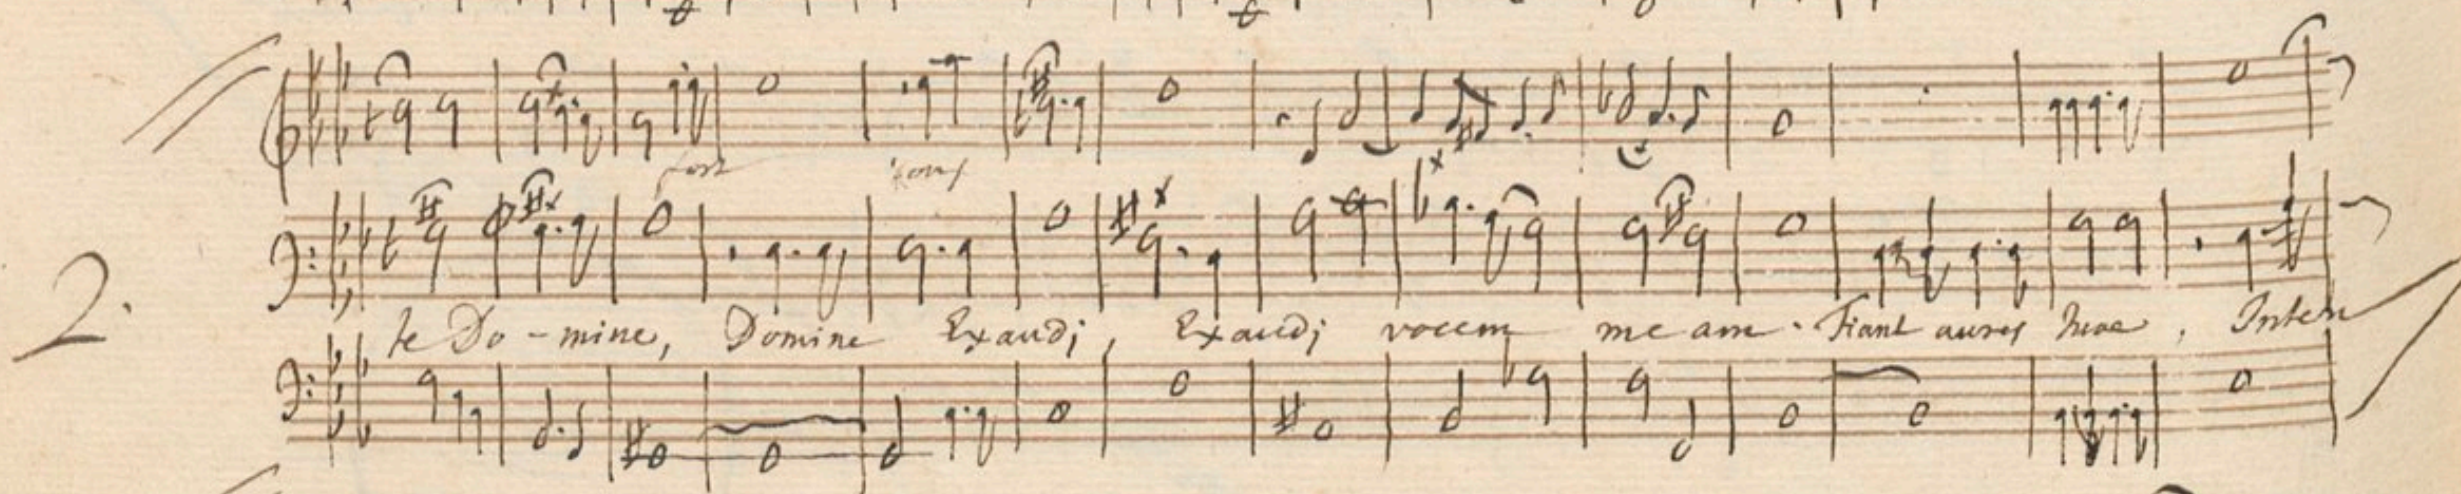 fort
2.
te Do - mine, Domine Exaudi, Exaudi vocem me am. Fiant aures tuae, Inten